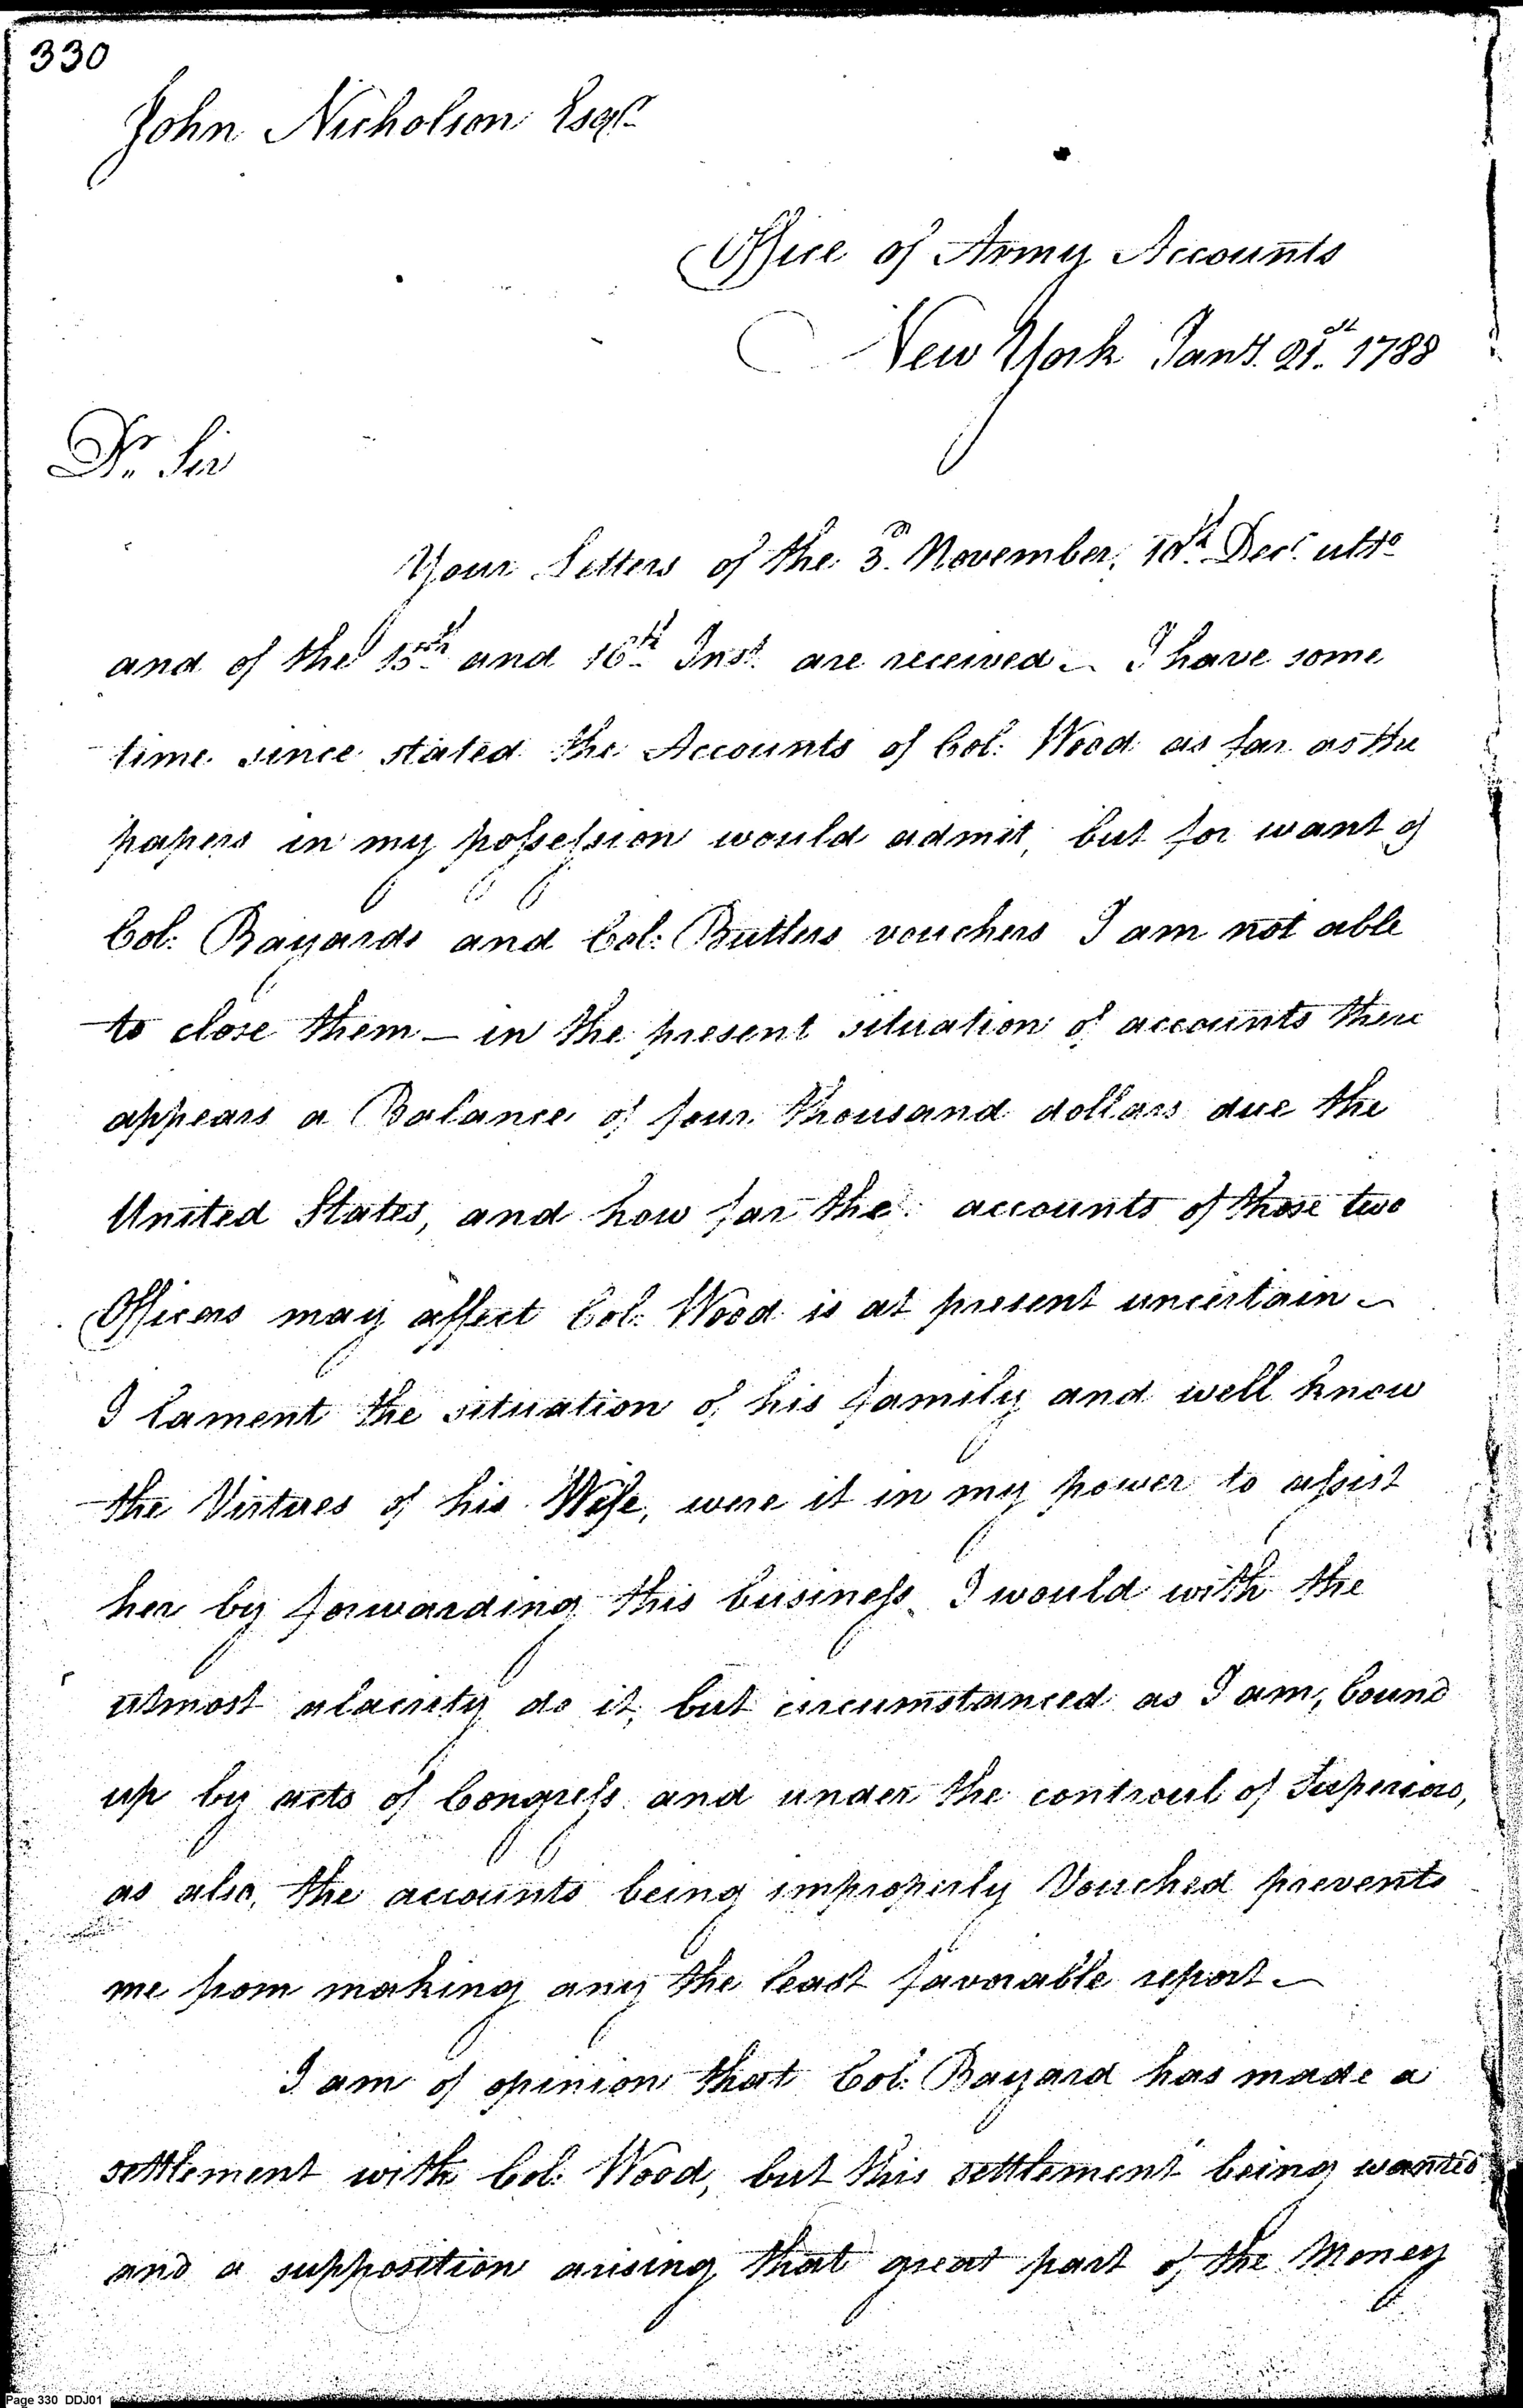 330
John Nicholson Esqr.
Office of Army Accounts
New York Jany. 21st. 1788
Dr. Sir
Your Letters of the 3d. November, 10th. Decr. ulto.
and of the 15th. and 16th. Inst. are received - I have some
time since stated the Accounts of Col: Wood as far as the
papers in my possession would admit, but for want of
Col: Bayards and Col: Butlers vouchers I am not able
to close them - in the present situation of accounts there
appears a Balance of four thousand dollars due the
United States, and how far the accounts of those two
Officers may affect Col: Wood is at present uncertain -
I lament the situation of his family and well know
the Virtues of his Wife, were it in my power to assist
her by forwarding this business I would with the
utmost alacrity do it, but circumstanced as I am, bound
up by acts of Congress and under the controul of Superiors,
as also, the accounts being improperly Vouched prevents
me from making any the least favorable report -
I am of opinion that Col: Bayard has made a
settlement with Col: Wood, but this settlement being wanted
and a supposition arising that great part of the Money
Page 330 DDJ01